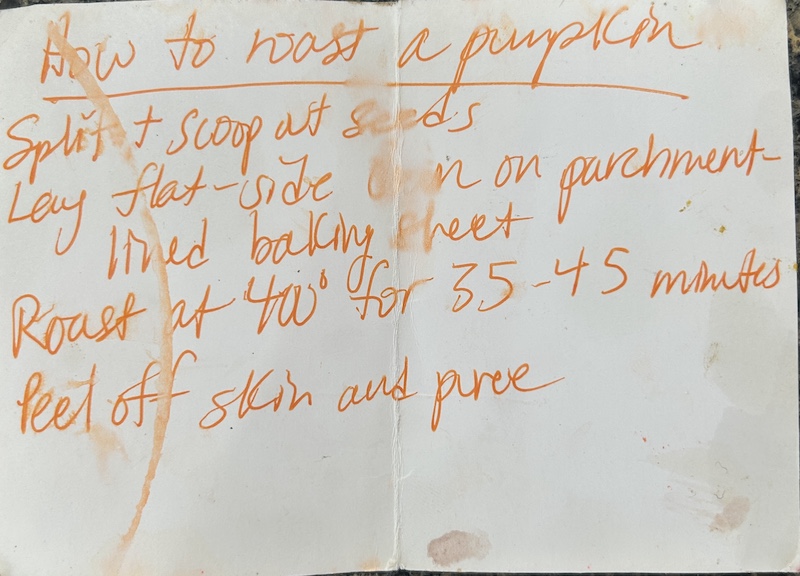 How to roast a pumpkin
Split + scoop out seeds
Lay flat-side down on parchment-
lined baking sheet
Roast at 400° for 35-45 minutes
Peel off skin and puree